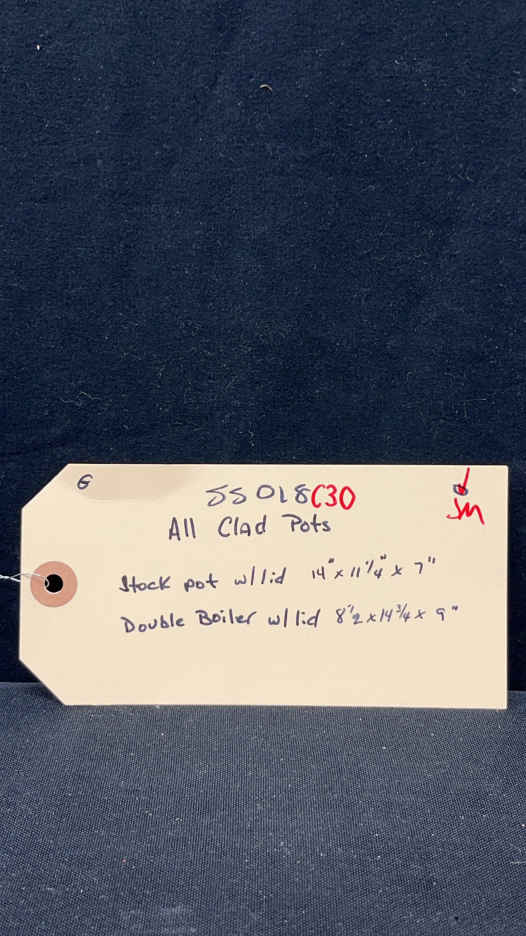 G
SS018C30
All Clad Pots
SM
Stock pot w/lid 14" x 11 1/4" x 7"
Double Boiler w/ lid 8 1/2 x 14 3/4 x 9"